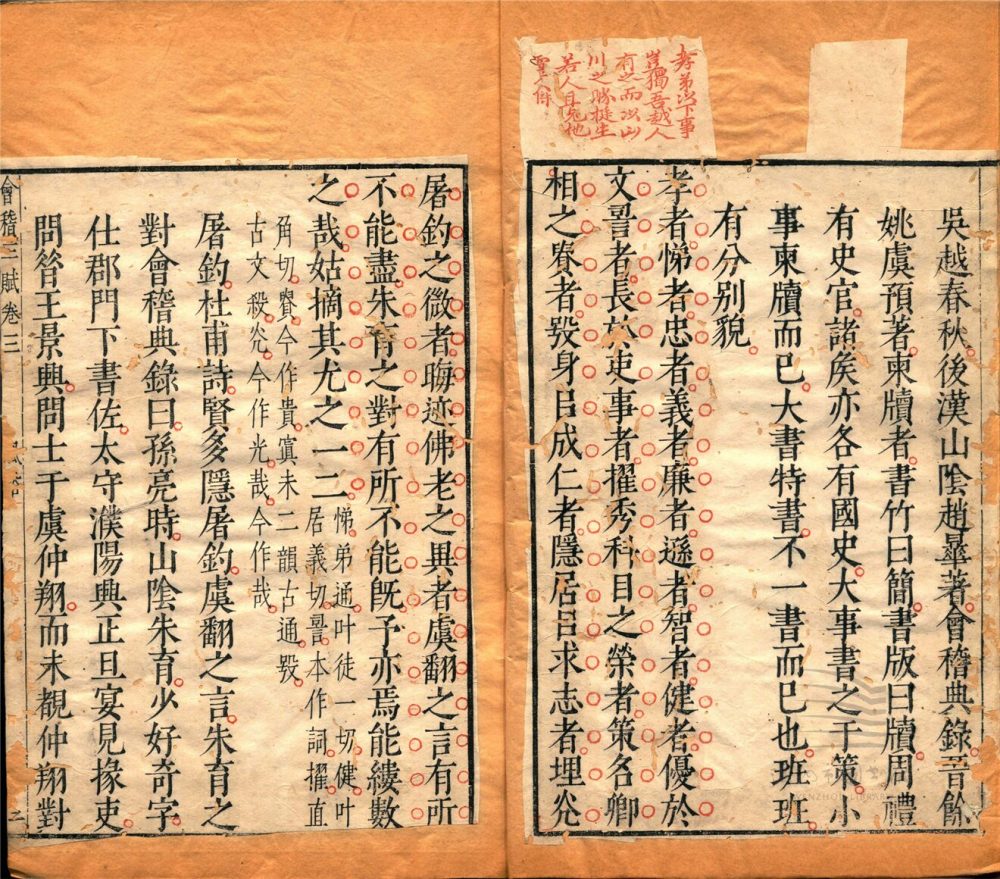 孝弟以下事
豈獨吾越人
有之而以山
川之勝挺生
若人耳兎他
吳越春秋後漢山陰趙曅著會稽典錄晉餘
姚虞預著柬牘者書竹曰簡書版曰牘周禮
有史官諸矦亦各有國史大事書之于策小
事柬牘而已大書特書不一書而已也班班
有分別貌
孝者悌者忠者義者廉者遜者智者健者優於
文䛐者長於吏事者擢秀科目之榮者策名卿
相之賮者毀身㠯成仁者隱居㠯求志者埋灮
屠釣之微者晦迹佛老之異者虞翻之言有所
不能盡朱育之對有所不能旣予亦焉能縷數
之哉姑摘其尤之一二悌弟通叶徒一切健叶
居義切䛐本作詞擢直
角切賮今作貴寘未二韻古通毀
古文殺灮今作光㢤今作哉
屠釣杜甫詩賢多隱屠釣虞翻之言朱育之
對會稽典錄曰孫亮時山陰朱育少好奇字
仕郡門下書佐太守濮陽興正旦宴見掾吏
問昝王景興問士于虞仲翔而未覩仲翔對
會稽三賦卷三
三